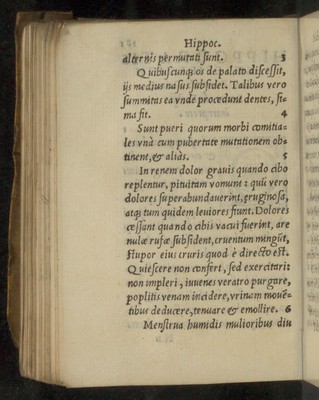 Hippoc.
alternis permutati sunt. 3
Quibuscunq; os de palato discessit,
ijs medius nasus subsidet. Talibus vero
summitas ea vnde procedunt dentes, si-
ma fit. 4
Sunt pueri quorum morbi comitia-
les vnà cum pubertate mutationem ob-
tinent, & aliàs. 5
In renem dolor grauis quando cibo
replentur, pituitam vomunt: quũ vero
dolores superabundauerint, ęruginosa,
atq; tum quidem leuiores fiunt. Dolores
cessant quando cibis vacui fuerint, are
nulæ rufæ subsident, cruentum mingũt,
stupor eius cruris quod è directo est.
Quiescere non confert, sed exercitari:
non impleri, iuuenes veratro purgare,
poplitis venam incidere, vrinam mouẽ-
tibus deducere, tenuare & emollire. 6
Menstrua humidis mulioribus diu